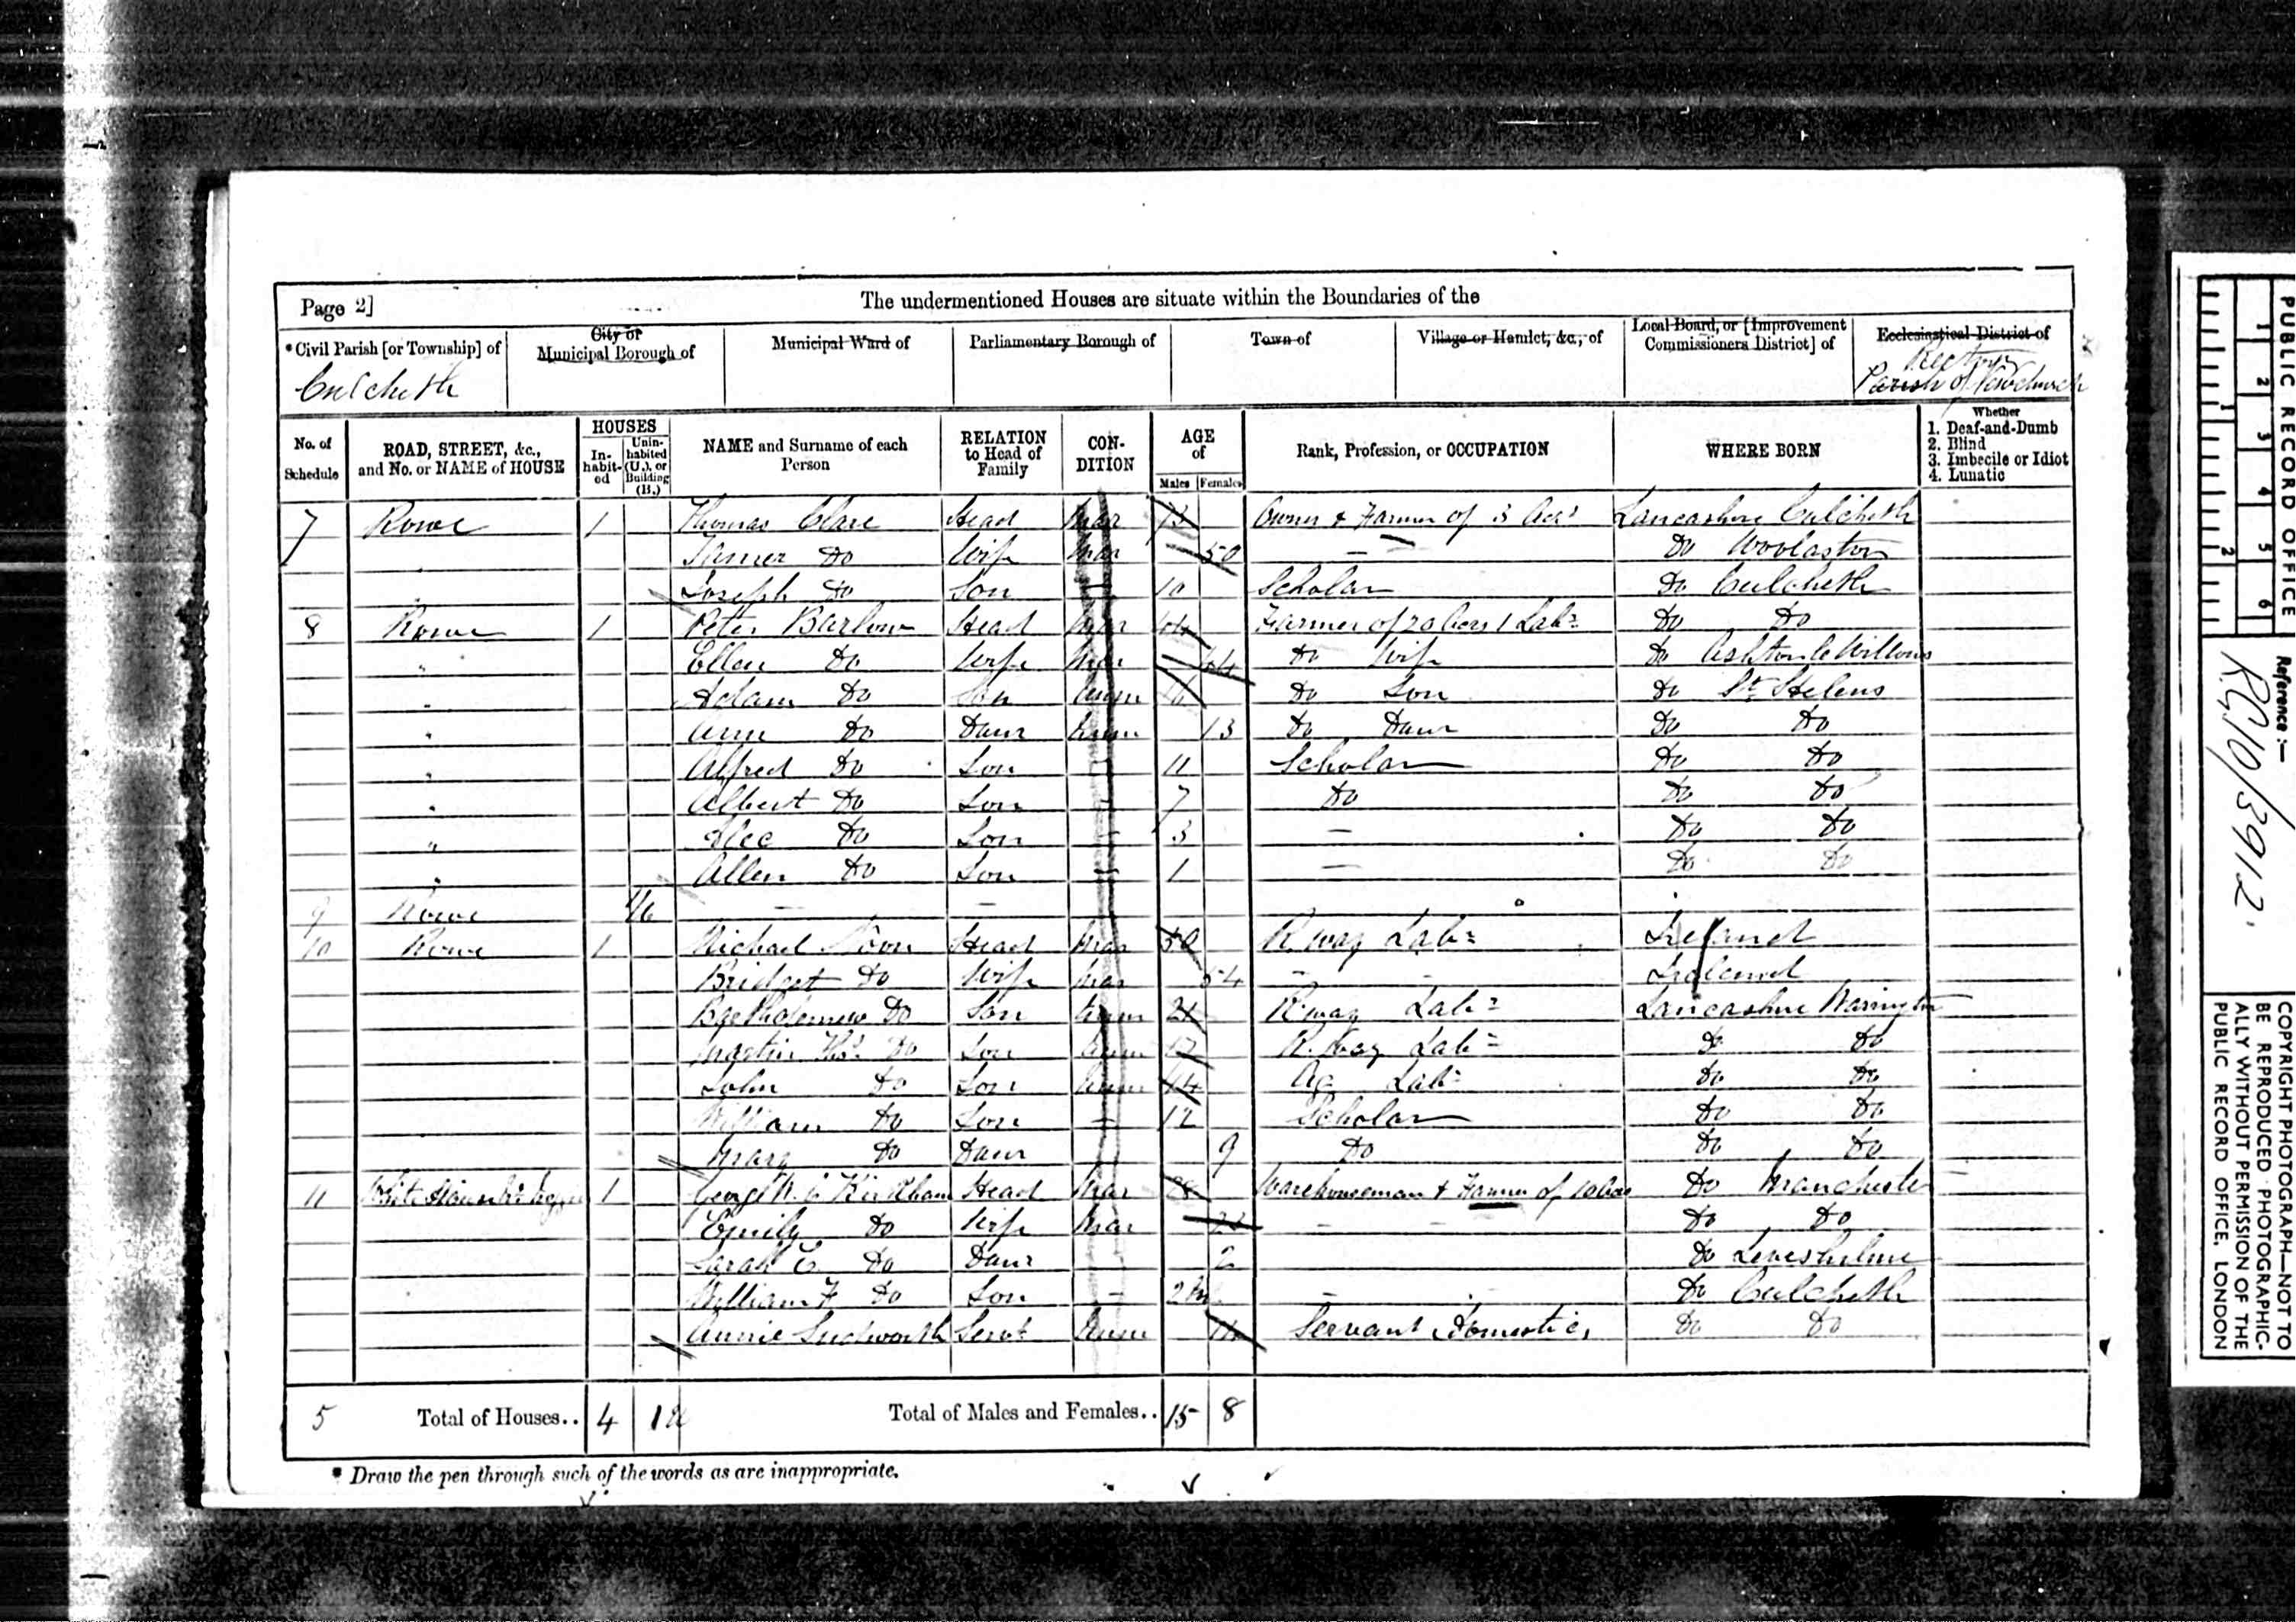 Page 2]
The undermentioned Houses are situate within the Boundaries of the
*Civil Parish [or Township] of
City or Municipal Borough of
Municipal Ward of
Parliamentary Borough of
Town of
Village or Hamlet, &c., of
Local Board, or [Improvement Commissioners District] of
Ecclesiastical District of
Culcheth
Rectory
Parish of Newchurch
No. of Schedule
ROAD, STREET, &c., and No. or NAME of HOUSE
HOUSES
In-habit-ed
Unin-habited (U.), or Building (B.)
NAME and Surname of each Person
RELATION to Head of Family
CON-DITION
AGE of
Males
Females
Rank, Profession, or OCCUPATION
WHERE BORN
Whether
1. Deaf-and-Dumb
2. Blind
3. Imbecile or Idiot
4. Lunatic
7 Rowe 1 Thomas Clare Head Mar Owner & Farmer of 3 Acrs Lancashire Culcheth
Do Wife Mar 50 — Do Woolaston
Joseph Do Son 10 Scholar Do Culcheth
8 Rowe 1 Peter Barlow Head Mar 44 Farmer of 20 Acres 1 Labr Do Do
" Ellen Do Wife Mar 44 Do Wife Do Ashton le Willows
" Adam Do Son Unm 16 Do Son Do St Helens
" Ann Do Daur Unm 13 Do Daur Do Do
" Alfred Do Son 11 Scholar Do Do
" Albert Do Son - 7 Do Do Do
" Alec Do Son - 3 — Do Do
" Allen Do Son 1 — Do Do
9 Rowe 1U — —
10 Rowe 1 Michael Head Mar 50 R.way Labr Ireland
Bridget Do Wife Mar 54 - - Ireland
Bartholomew Do Son Unm 21 R.way Labr Lancashire Warrington
Martin Ths. Do Son Unm 17 R.way Labr Do Do
John Do Son Unm 14 Ag Labr Do Do
William Do Son - 12 Scholar Do Do
Mary Do Daur 9 Do Do Do
11 1 George W. Kirkham Head Mar 28 Warehouseman & Farmer of 10 Acres Do Manchester
Emily Do Wife Mar - - Do Do
Sarah E Do Daur 2 Do Levenshulme
William F Do Son - 2m - - Do Culcheth
Annie Ludworth Servt Unm 14 Servant Domestic Do Do
5 Total of Houses.. 4 1U Total of Males and Females.. 15 8
* Draw the pen through such of the words as are inappropriate.
PUBLIC RECORD OFFICE
1 2 3 4 5 6
1 2
Reference:—
R.G.10/3912
COPYRIGHT PHOTOGRAPH—NOT TO
BE REPRODUCED PHOTOGRAPHIC-
ALLY WITHOUT PERMISSION OF THE
PUBLIC RECORD OFFICE, LONDON